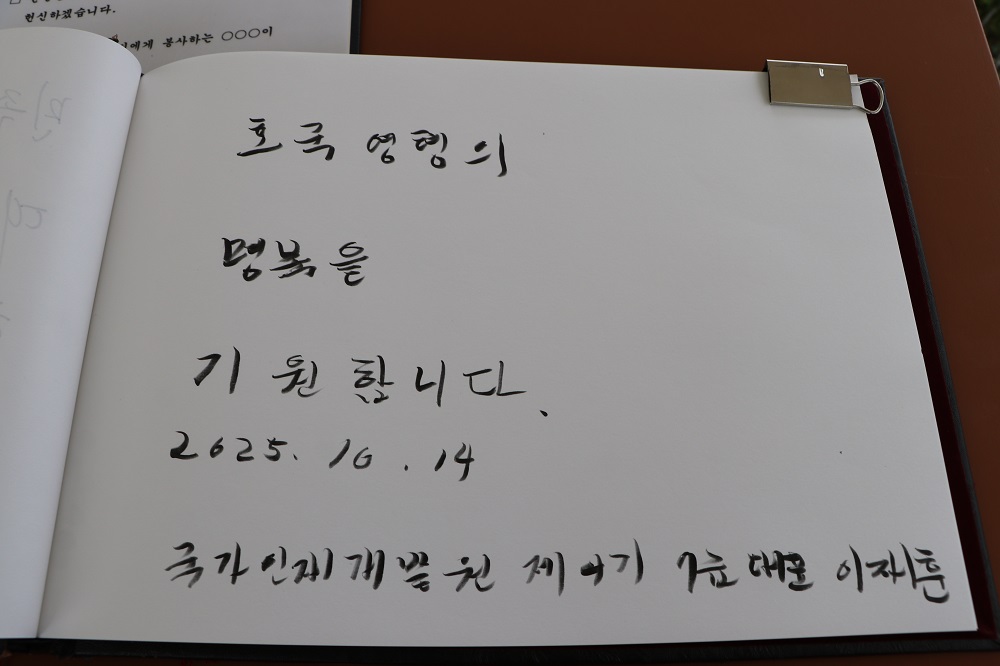 헌신하겠습니다.
에게 봉사하는 ○○○이
호국 영령의
명복을
기원합니다.
2025. 10. 14
국가인재개발원 제 기 대표 이재훈